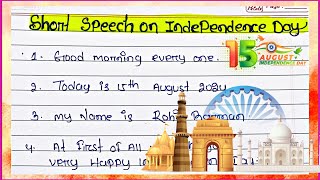 Short Speech on Independence Day
1. Good morning every one.
2. Today is 15th August 2024
3. my Name is Rohi Barman
4. At first of All
very Happy
15
AUGUST
INDEPENDENCE DAY